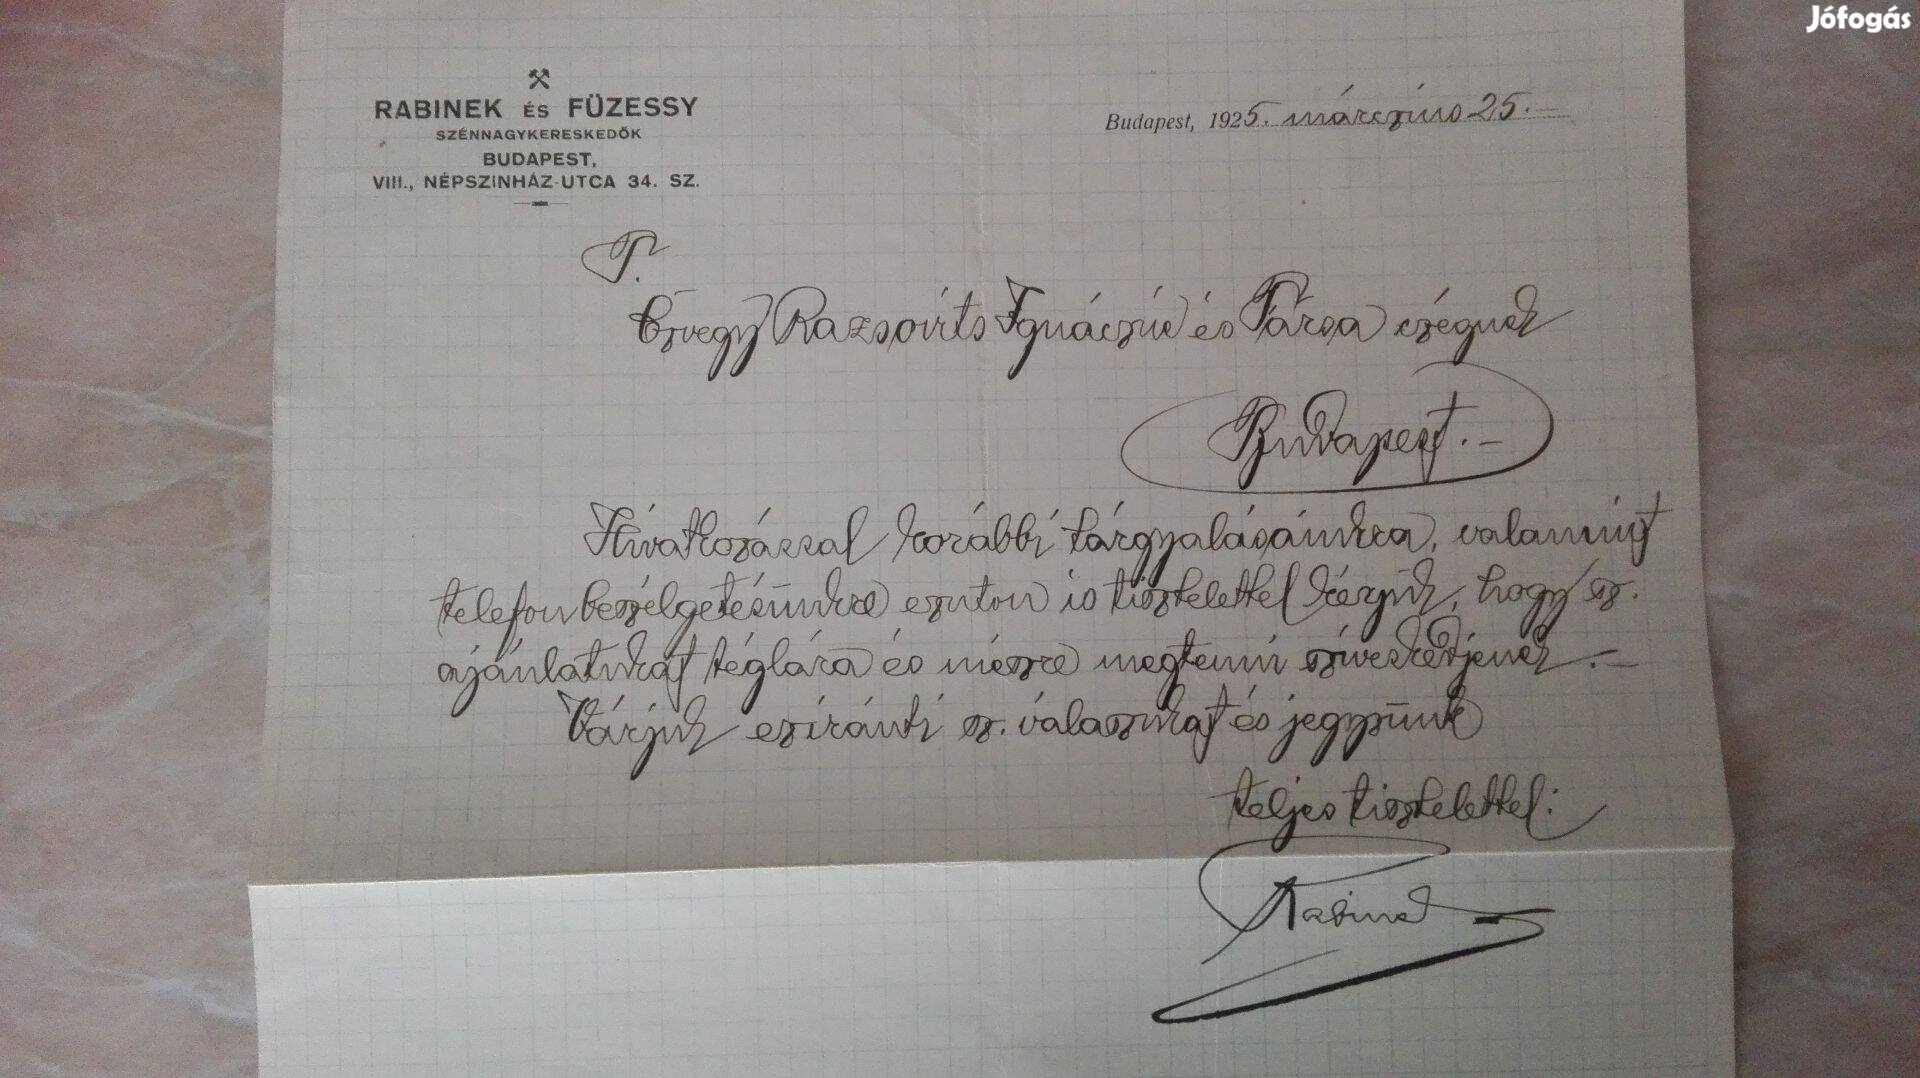 Jófogás
RABINEK ÉS FÜZESSY
SZÉNNAGYKERESKEDŐK
BUDAPEST,
VIII., NÉPSZINHÁZ-UTCA 34. SZ.
Budapest, 1925. március 25.-
T.
Özvegy Ignácné és Társa czégnek
Budapest.-
Hivatkozással korábbi tárgyalásainkra, valamint
telefonbeszélgetésünkre ezuton is tisztelettel kérjük, hogy sz.
ajánlatukat téglára és mészre megtenni sziveskedjenek.-
Várjuk eziránti sz. válaszukat és jegyzünk
teljes tisztelettel:
Rabinek